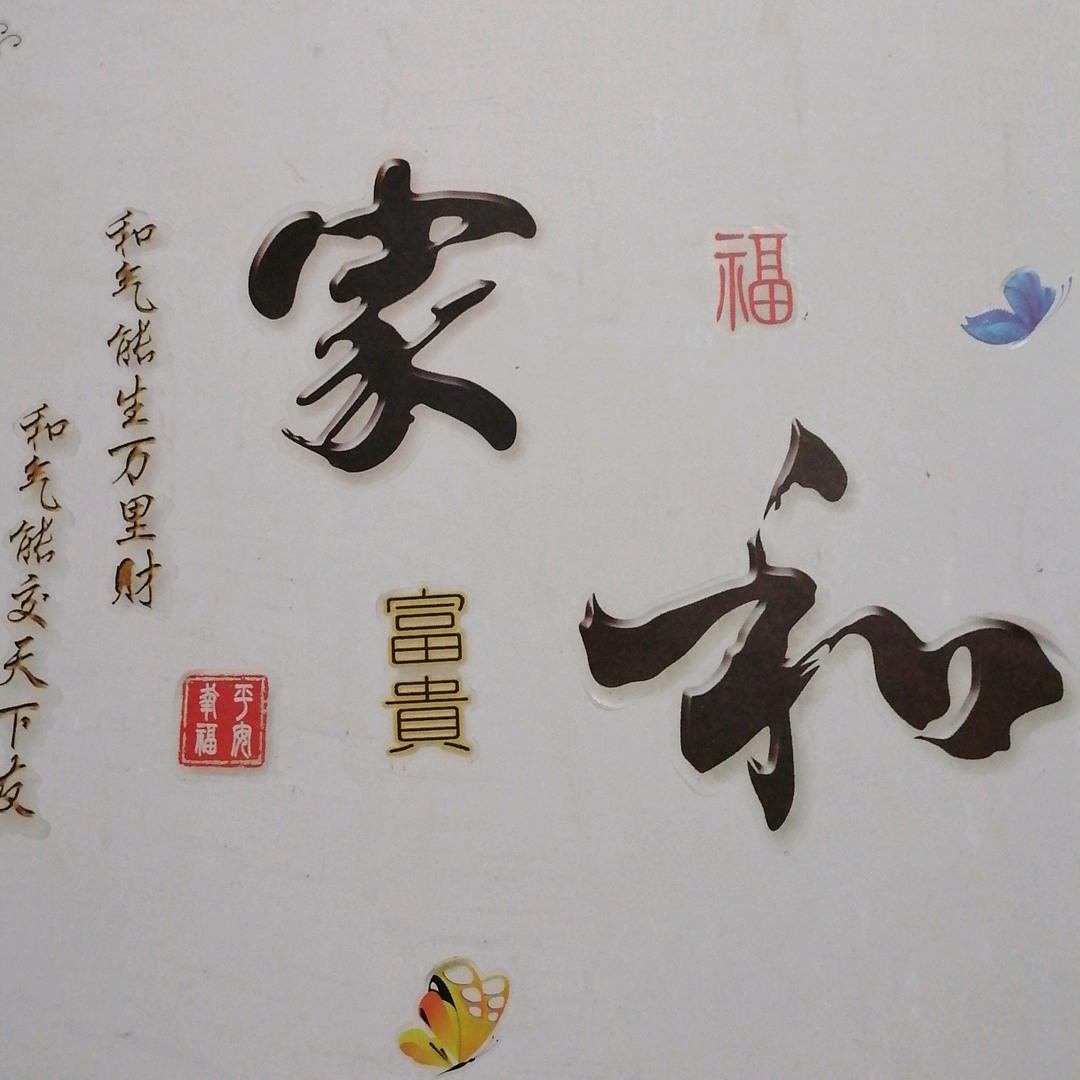 和
福
家
富貴
平安
幸福
和气能生万里财
和气能交天下友